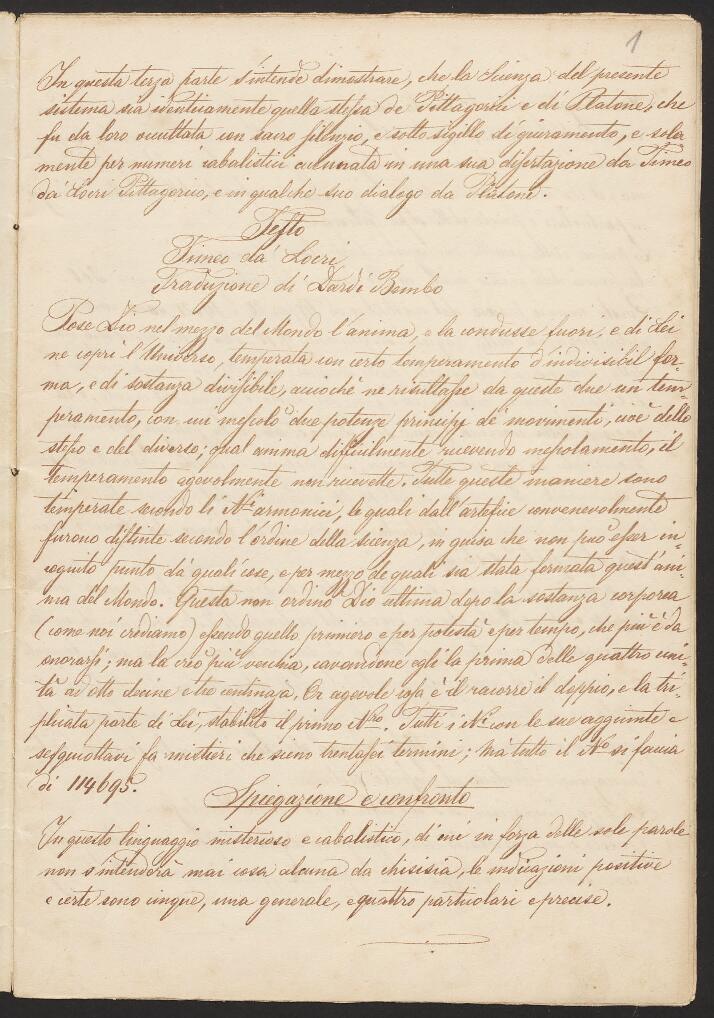 1
In questa terza parte s'intende dimostrare, che la Scienza del presente
sistema sia identicamente quella stessa de' Pittagorici e di Platone, che
fu da loro occultata con sacro silenzio, e sotto sigillo di giuramento, e sola-
mente per numeri cabalistici accennata in una sua dissertazione da Timeo
da Locri Pittagorico, e in qualche suo dialogo da Platone.
Testo
Timeo da Locri
Traduzione di Dardi Bembo
Pose Dio nel mezzo del Mondo l'anima, e la condusse fuori, e di Lei
ne coprì l'Universo, temperata con certo temperamento d'indivisibil for-
ma, e di sostanza divisibile, acciochè ne risultasse da queste due un tem-
peramento, con cui mescolò due potenze principj de' movimenti, cioè dello
stesso e del diverso; qual anima difficilmente ricevendo mescolamento, il
temperamento agevolmente non ricevette. Tutte queste maniere sono
temperate secondo li Ni armonici, le quali dall'artefice convenevolmente
furono distinte secondo l'ordine della scienza, in guisa che non può esser in-
cognito punto da quali cose, e per mezzo de quali sia stata formata quest'ani-
ma del Mondo. Questa non ordinò Dio ultima dopo la sostanza corporea
(come noi crediamo) essendo quello primiero e per potestà e per tempo, che più è da
onorarsi; ma la creò più vecchia, cavandone egli la prima delle quattro uni-
tà ad otto decine e tre centinaja. Or agevole cosa è il racorre il doppio, e la tri-
plicata parte di Lei, stabilito il primo Nro. Tutti i Ni con le sue aggiunte e
sesquiottavi fa mistieri che sieno trentasei termini; ma tutto il No si faccia
di 114695.
Spiegazione e confronto
In questo linguaggio misterioso e cabalistico, di cui in forza delle sole parole
non s'intenderà mai cosa alcuna da chisisia, le indicazioni positive
e certe sono cinque, una generale, e quattro particolari e precise.